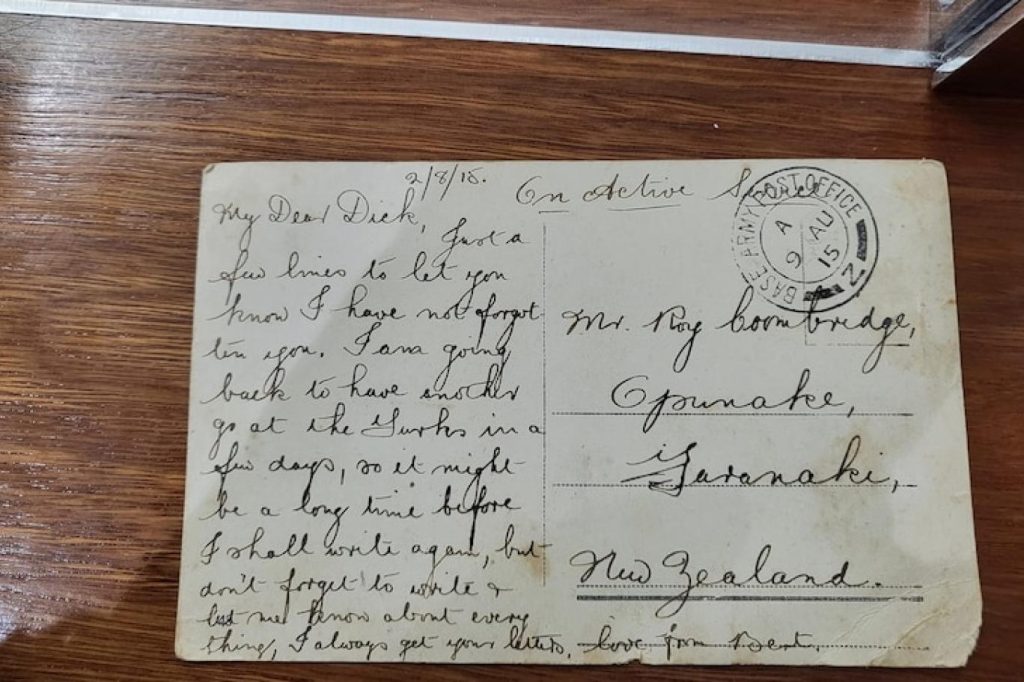 2/8/15.
On Active Service
My Dear Dick,
Just a
few lines to let you
know I have not forgot
ten you. I am going
back to have another
go at the Turks in a
few days, so it might
be a long time before
I shall write again, but
don't forget to write &
let me know about every
thing, I always get your letters, love from Bert.
BASE ARMY POST OFFICE
A
9 AU
15
Z
Mr. Roy Coombridge,
Opunake,
Taranaki,
New Zealand.